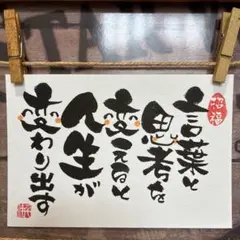 言葉と
思考を
変えると
人生が
変わり出す
招福